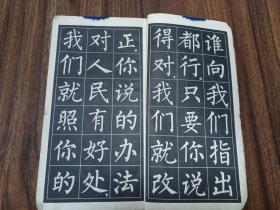 谁向我们指出
都行。只要你说
得对，我们就改
正。你说的办法
对人民有好处，
我们就照你的